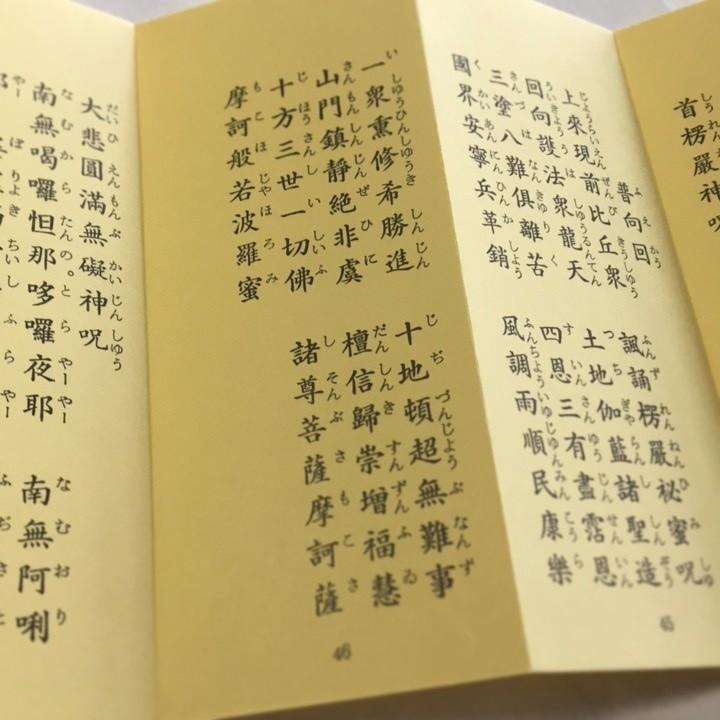 首楞嚴神呪
普回向
上來現前比丘衆 諷誦楞嚴秘密呪
回向護法衆龍天 土地伽藍諸聖造
三塗八難俱離苦 四恩三有盡霑恩
國界安寧兵革銷 風調雨順民康樂
45
一衆熏修希勝進 十地頓超無難事
山門鎮靜絶非虞 檀信歸崇增福慧
十方三世一切佛 諸尊菩薩摩訶薩
摩訶般若波羅蜜
46
大悲圓滿無礙神呪
南無喝囉怛那哆囉夜耶 南無阿唎